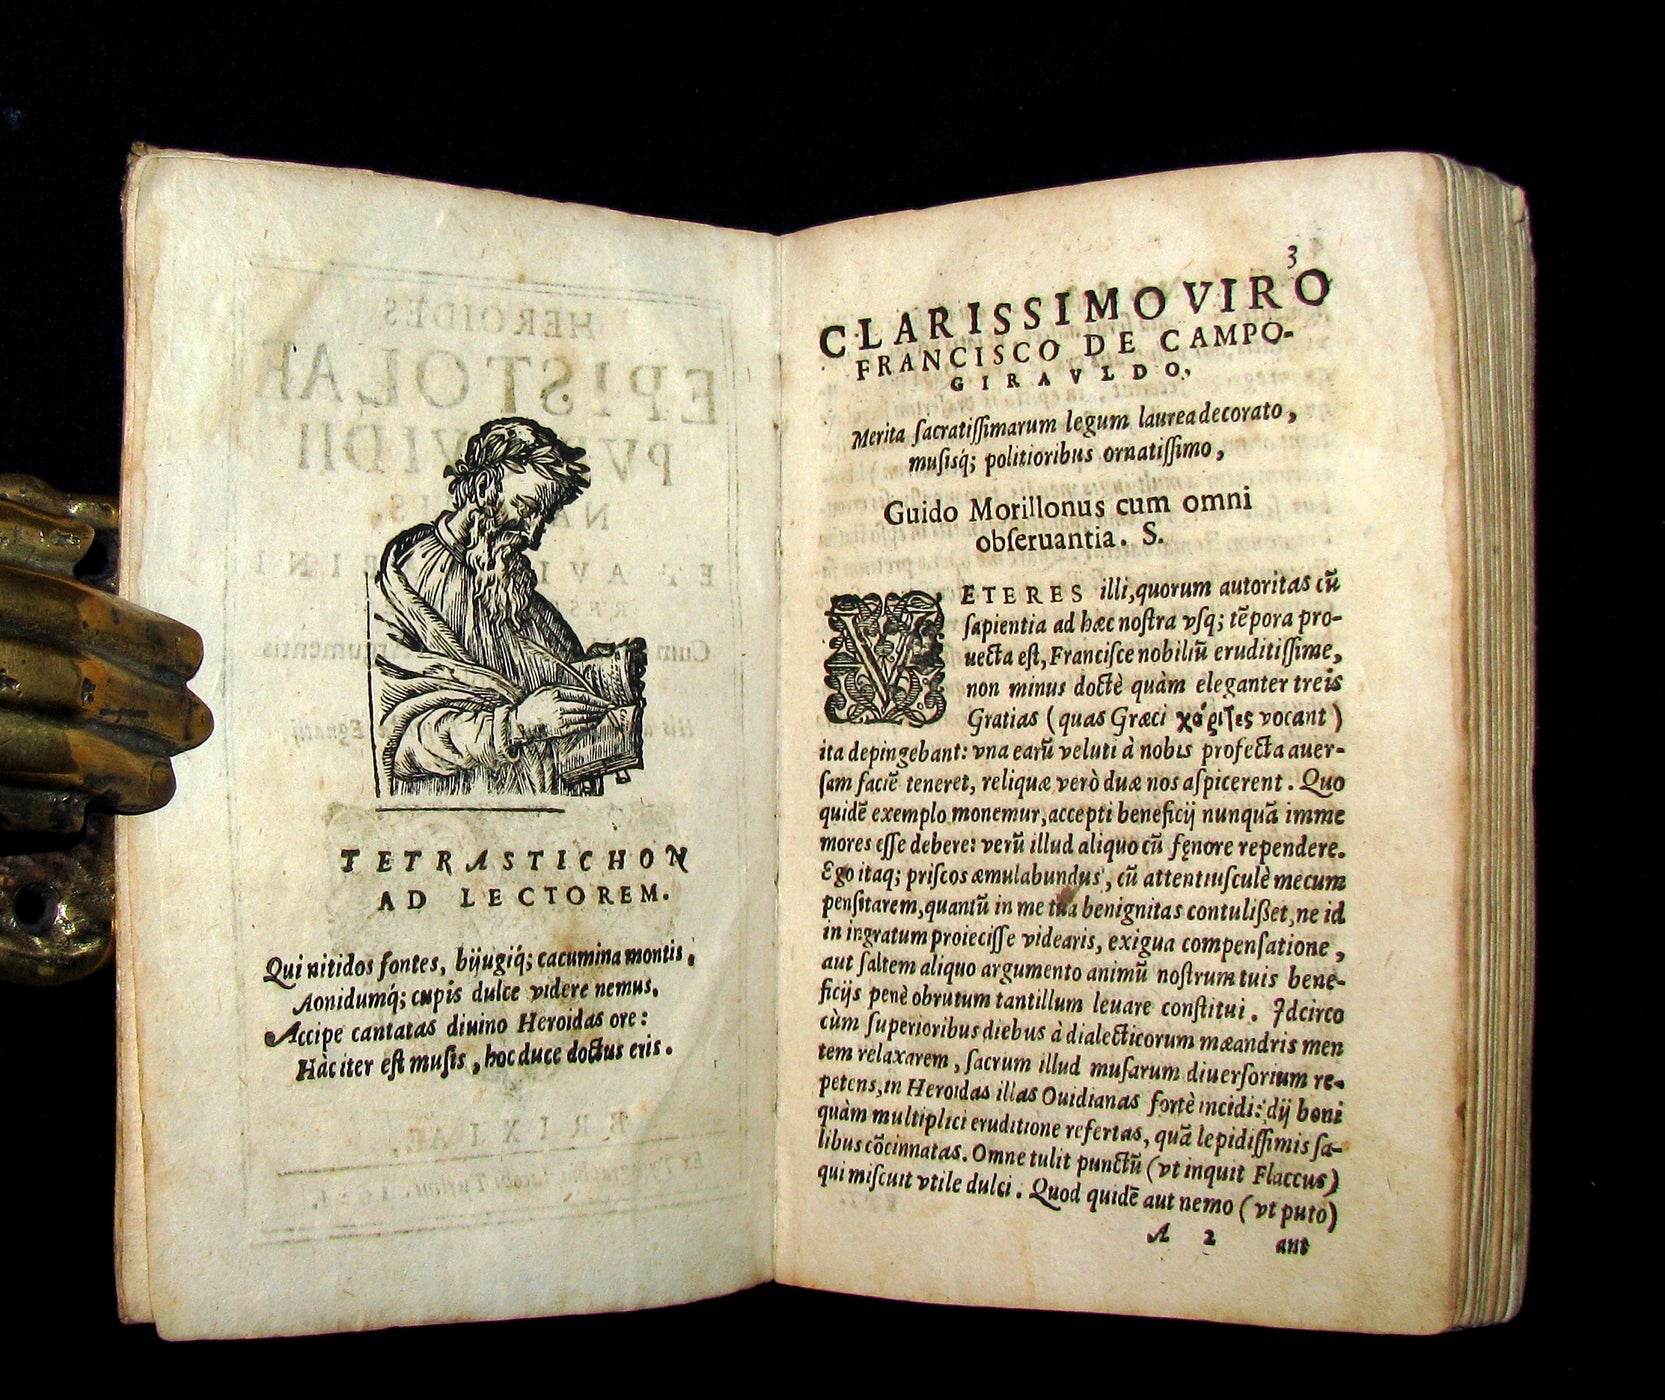 TETRASTICHON
AD LECTOREM.
Qui nitidos fontes, bijugiq́; cacumina montis,
Aonidumq́; cupis dulce videre nemus,
Accipe cantatas diuino Heroidas ore:
Hàc iter est musis, hoc duce doctus eris.
3
CLARISSIMO VIRO
FRANCISCO DE CAMPO-
GIRAVLDO,
Merita ſacratiſſimarum legum laurea decorato,
muſisq́; politioribus ornatiſſimo,
Guido Morillonus cum omni
obſeruantia. S.
VETERES illi, quorum autoritas cũ
ſapientia ad hæc noſtra vſq; tẽpora pro-
uecta eſt, Franciſce nobiliũ eruditiſſime,
non minus doctè quàm eleganter treis
Gratias (quas Græci χάριτες vocant)
ita depingebant: vna earũ veluti à nobis profecta auer-
ſam faciẽ teneret, reliquæ verò duæ nos aſpicerent. Quo
quidẽ exemplo monemur, accepti beneficij nunquã imme
mores eſſe debere: verũ illud aliquo cũ fęnore rependere.
Ego itaq; priſcos æmulabundus, cũ attentiuſculè mecum
penſitarem, quantũ in me tua benignitas contulißet, ne id
in ingratum proieciſſe videaris, exigua compenſatione,
aut ſaltem aliquo argumento animũ noſtrum tuis bene-
ficijs penè obrutum tantillum leuare conſtitui. Idcirco
cùm ſuperioribus diebus à dialecticorum mæandris men
tem relaxarem, ſacrum illud muſarum diuerſorium re-
petens, in Heroidas illas Ouidianas fortè incidi: dij boni
quàm multiplici eruditione refertas, quã lepidiſſimis ſa-
libus cõcinnatas. Omne tulit punctũ (vt inquit Flaccus)
qui miſcuit vtile dulci. Quod quidẽ aut nemo (vt puto)
A 2 aut